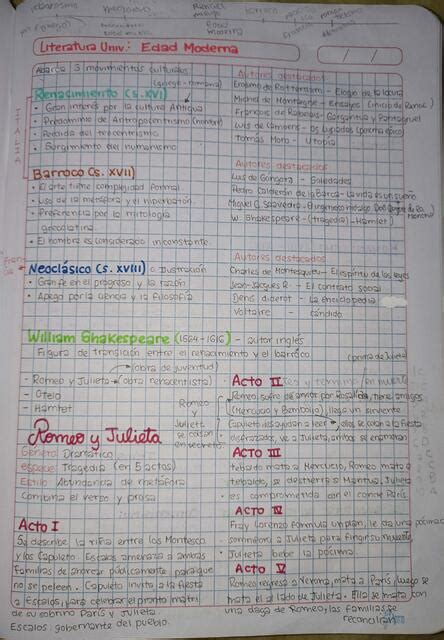 Literatura Univ.: Edad Moderna
Abarca 3 movimientos culturales
(griego-romana)
Renacimiento (s. XVI)
• Gran interés por la cultura Antigua
• Predominio de Antropocentrismo (hombre)
• Perdida del teocentrismo
• Surgimiento del humanismo
ITALIA
Autores destacados
Erasmo de Rotterdam - Elogio de la locura
Michel de Montaigne - Ensayos (inicio de Renac)
Francois de Rabelais - Gargantúa y Pantagruel
Luis de Camoens - Os Lusiadas (poema épico)
Tomás Moro - Utopia
Barroco (s. XVII)
• El arte tiene complejidad formal.
• Uso de la metáfora y el hiperbatón.
• Preferencia por la mitología
grecolatina.
• El hombre es considerado inconstante.
Autores destacados
Luis de Góngora - Soledades
Pedro Calderón de la Barca - La vida es un sueño
Miguel C. Saavedra - El ingenioso hidalgo Don Quijote de la Mancha
W. Shakespeare - (tragedia) - Hamlet
Neoclásico (s. XVIII) o Ilustración
• Gran fe en el progreso y la razón
• Apego por la ciencia y la filosofía
Autores destacados
Charles de Montesquieu - El espíritu de las leyes
Jean-Jacques R. - El contrato social
Denis diderot - La enciclopedia
Voltaire - cándido
William Shakespeare (1524-1616) - autor inglés
Figura de transición entre el renacimiento y el barroco
(obra de juventud)
- Romeo y Julieta (obra renacentista)
- Otelo
- Hamlet
Romeo y Julieta
Género Dramático
especie Tragedia (en 5 actos)
Estilo Abundancia de metáfora
Combina el verso y prosa
Acto I
Se describe la riña entre los Montesco
y los Capuleto. Escalos amenaza a ambas
familias de ahorcar públicamente para que
no se peleen. Capuleto invita a la fiesta
a Escalos, para celebrar el pronto matri
de su sobrino París y Julieta.
Escalos: gobernante del pueblo.
(prima de Julieta)
Acto II
Romeo, sufre de amor por Rosalida, tiene amigos
(Mercucio y Benbolio), llega un sirviente
Capuleto les ayudan a leer, ellos se colan a la fiesta
disfrazados, ve a Julieta, ambos se enamoran
Romeo y Julieta se casan en secreto
Acto III
tebaldo mata a Mercucio, Romeo mata a
tebaldo, se destierra a Mantua, Julieta
es comprometida con el conde París.
Acto IV
Fray Lorenzo formula un plan, le da una pócima
somnífera a Julieta para fingir su muerte
Julieta bebe la pócima
Acto V
Romeo regresa a Verona, mata a París, luego se
mata el al lado de Julieta. Ella se mata con
una daga de Romeo, las familias se
reconcilian